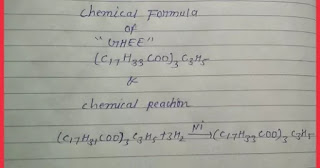 Chemical Formula
OF
"GHEE"
(C₁₇H₃₃COO)₃C₃H₅
&
chemical reaction
(C₁₇H₃₁COO)₃C₃H₅+3H₂ —Ni→ (C₁₇H₃₃COO)₃C₃H₅